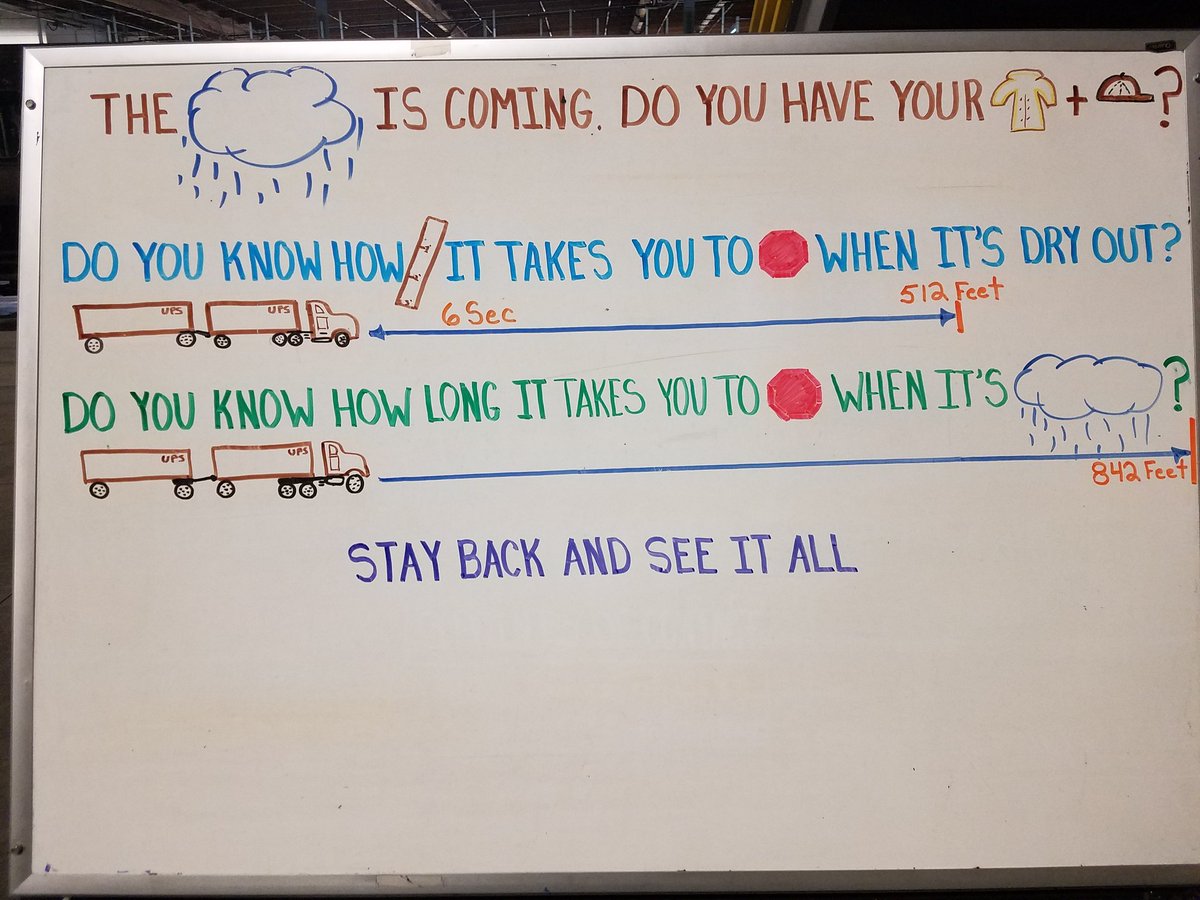 THE IS COMING. DO YOU HAVE YOUR + ?
DO YOU KNOW HOW IT TAKES YOU TO WHEN IT'S DRY OUT?
UPS UPS 6 Sec 512 Feet
DO YOU KNOW HOW LONG IT TAKES YOU TO WHEN IT'S ?
UPS UPS 842 Feet
STAY BACK AND SEE IT ALL